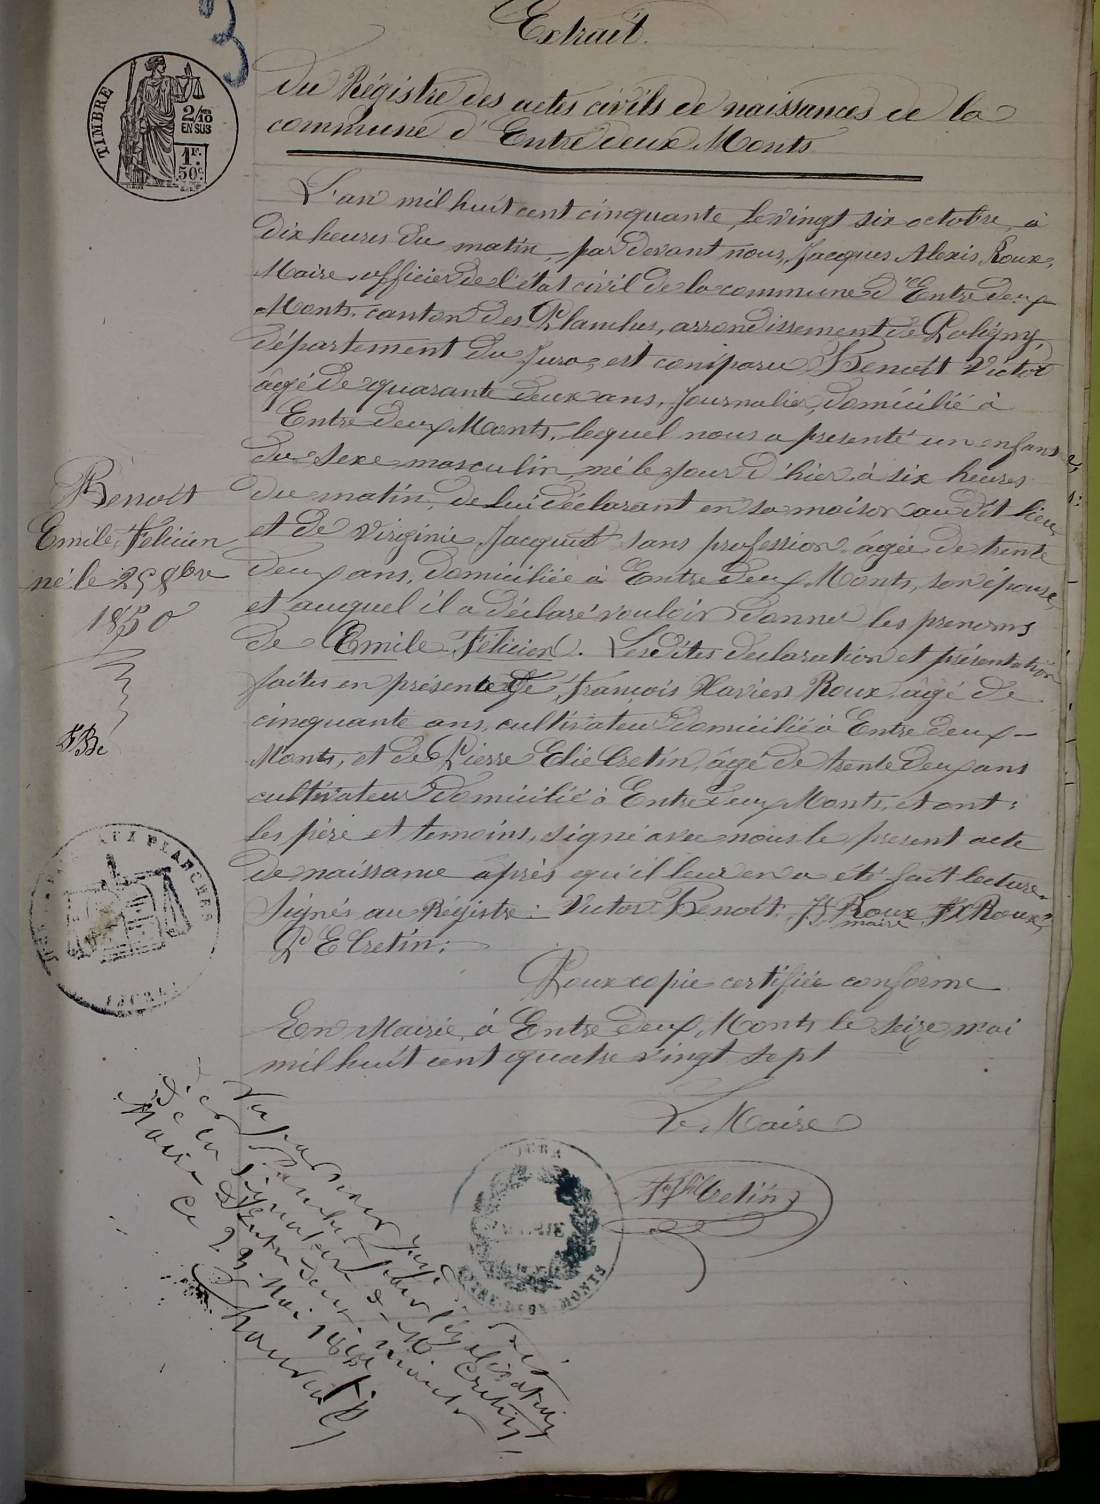 3
Extrait
du Régistre des actes civils de naissances de la
commune d'Entre deux Monts
TIMBRE
2/10 EN SUS
1F. 50c.
L'an mil huit cent cinquante, le vingt six octobre, à
dix heures du matin, par devant nous, Jacques Alexis Roux,
Maire, officier de l'état civil de la commune d'Entre deux
Monts, canton des Planches, arrondissement de Poligny,
département du Jura, est comparu Benoît Victor
âgé de quarante deux ans, journalier, domicilié à
Entre deux Monts, lequel nous a présenté un enfant
du sexe masculin, né le jour d'hier à six heures
du matin, de lui déclarant en sa maison au dit lieu
et de Virginie Jacquet sans profession, âgée de trente
deux ans, domiciliée à Entre deux Monts, son épouse,
et auquel il a déclaré vouloir donner les prenoms
de Emile Félicien. Les dites declaration et présentation
faites en présence de François Xavier Roux, âgé de
cinquante ans, cultivateur domicilié à Entre deux-
Monts, et de Pierre Elie Cretin, âgé de trente deux ans
cultivateur domicilié à Entre deux Monts, et ont:
les père et temoins, signé avec nous le present acte
de naissance après qu'il leur en a été fait lecture.
Signés au Régistre: Victor Benoît, Roux maire, F X Roux,
P E Cretin;
Benoît
Emile Félicien
né le 25 8bre
1850
AUX PLANCHES
(JURA)
Pour copie certifiée conforme
En Mairie à Entre deux Monts le seize mai
mil huit cent quatre vingt sept
Le Maire
Cretin
JURA
MAIRIE
Vu par nous juge de paix
des Planches pour légalisation
de la signature de M Cretin
Maire d'Entre deux monts